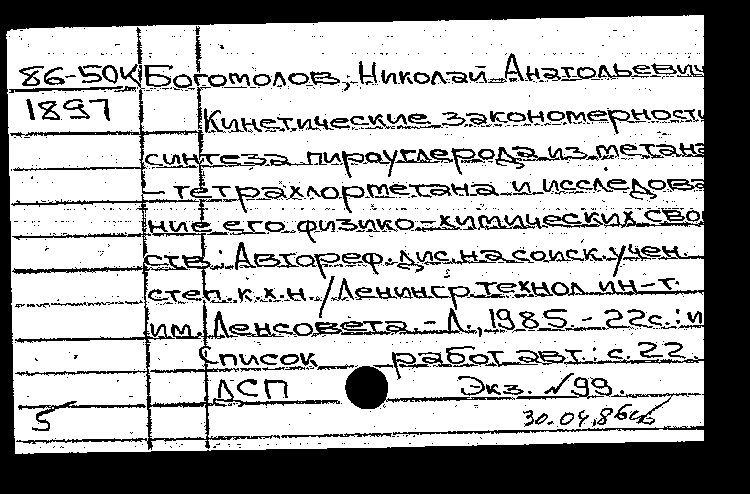 86-50к Боготолов, Николай Анатольевич
1897 Кинетические закономерности
синтеза пироуглерода из метана
- тетрахлорметана и исследова
ние его физико-химических свой
ств: Автореф. дис. на соиск. учен.
степ. к.х.н. / Ленингр. технол. ин-т.
им. Ленсовета. - Л., 1985. - 22с.: и
Список работ авт.: с. 22.
ДСП Экз. №99.
5 30.04.86